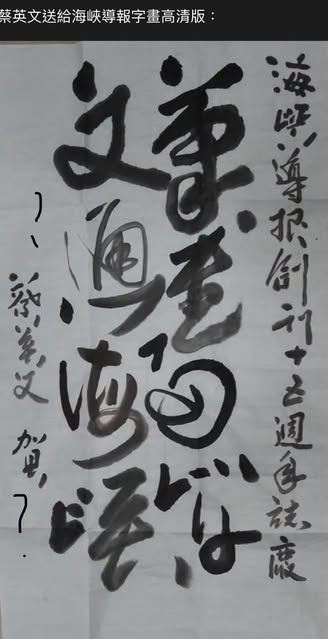 蔡英文送給海峽導報字畫高清版：
海峽導報創刊十五週年誌慶
筆兩岸
文通海峽
蔡英文 賀